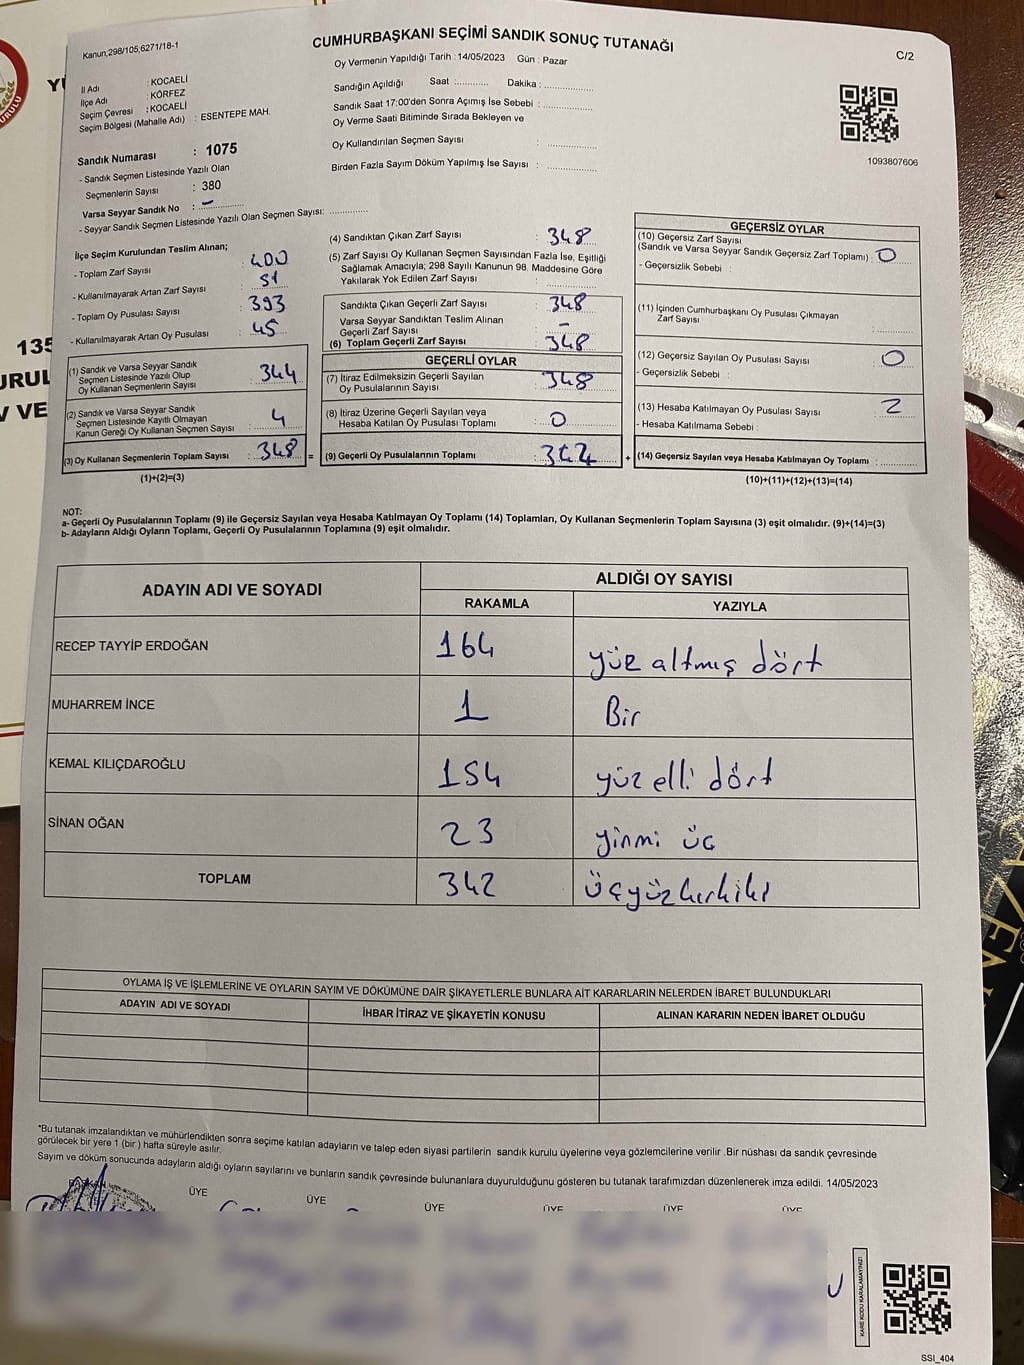 Kanun,298/105,6271/18-1
CUMHURBAŞKANI SEÇİMİ SANDIK SONUÇ TUTANAĞI
C/2
İl Adı : KOCAELİ
İlçe Adı : KÖRFEZ
Seçim Çevresi : KOCAELİ
Seçim Bölgesi (Mahalle Adı) : ESENTEPE MAH.
Sandık Numarası : 1075
- Sandık Seçmen Listesinde Yazılı Olan
Seçmenlerin Sayısı : 380
Varsa Seyyar Sandık No : -
- Seyyar Sandık Seçmen Listesinde Yazılı Olan Seçmen Sayısı: ............
Oy Vermenin Yapıldığı Tarih : 14/05/2023 Gün : Pazar
Sandığın Açıldığı Saat :............ Dakika : ................
Sandık Saat 17:00'den Sonra Açımış İse Sebebi : ................
Oy Verme Saati Bitiminde Sırada Bekleyen ve
Oy Kullandırılan Seçmen Sayısı : ................
Birden Fazla Sayım Döküm Yapılmış İse Sayısı : ................
1093807606
İlçe Seçim Kurulundan Teslim Alınan;
- Toplam Zarf Sayısı : 400
- Kullanılmayarak Artan Zarf Sayısı : 51
- Toplam Oy Pusulası Sayısı : 393
- Kullanılmayarak Artan Oy Pusulası : 45
(1) Sandık ve Varsa Seyyar Sandık
Seçmen Listesinde Yazılı Olup
Oy Kullanan Seçmenlerin Sayısı : 344
(2) Sandık ve Varsa Seyyar Sandık
Seçmen Listesinde Kayıtlı Olmayan
Kanun Gereği Oy Kullanan Seçmen Sayısı : 4
(3) Oy Kullanan Seçmenlerin Toplam Sayısı : 348 =
(1)+(2)=(3)
(4) Sandıktan Çıkan Zarf Sayısı : 348
(5) Zarf Sayısı Oy Kullanan Seçmen Sayısından Fazla İse, Eşitliği
Sağlamak Amacıyla; 298 Sayılı Kanunun 98. Maddesine Göre
Yakılarak Yok Edilen Zarf Sayısı : ................
Sandıkta Çıkan Geçerli Zarf Sayısı : 348
Varsa Seyyar Sandıktan Teslim Alınan
Geçerli Zarf Sayısı : -
(6) Toplam Geçerli Zarf Sayısı : 348
GEÇERLİ OYLAR
(7) İtiraz Edilmeksizin Geçerli Sayılan
Oy Pusulalarının Sayısı : 348
(8) İtiraz Üzerine Geçerli Sayılan veya
Hesaba Katılan Oy Pusulası Toplamı : 0
(9) Geçerli Oy Pusulalarının Toplamı : 342 +
GEÇERSİZ OYLAR
(10) Geçersiz Zarf Sayısı
(Sandık ve Varsa Seyyar Sandık Geçersiz Zarf Toplamı) : 0
- Geçersizlik Sebebi :
(11) İçinden Cumhurbaşkanı Oy Pusulası Çıkmayan
Zarf Sayısı : ............
(12) Geçersiz Sayılan Oy Pusulası Sayısı : 0
- Geçersizlik Sebebi :
(13) Hesaba Katılmayan Oy Pusulası Sayısı : 2
- Hesaba Katılmama Sebebi :
(14) Geçersiz Sayılan veya Hesaba Katılmayan Oy Toplamı : ............
(10)+(11)+(12)+(13)=(14)
NOT:
a- Geçerli Oy Pusulalarının Toplamı (9) ile Geçersiz Sayılan veya Hesaba Katılmayan Oy Toplamı (14) Toplamları, Oy Kullanan Seçmenlerin Toplam Sayısına (3) eşit olmalıdır. (9)+(14)=(3)
b- Adayların Aldığı Oyların Toplamı, Geçerli Oy Pusulalarının Toplamına (9) eşit olmalıdır.
ADAYIN ADI VE SOYADI
ALDIĞI OY SAYISI
RAKAMLA YAZIYLA
RECEP TAYYİP ERDOĞAN 164 yüz altmış dört
MUHARREM İNCE 1 Bir
KEMAL KILIÇDAROĞLU 154 yüz elli dört
SİNAN OĞAN 23 yirmi üç
TOPLAM 342 üçyüzkırkiki
OYLAMA İŞ VE İŞLEMLERİNE VE OYLARIN SAYIM VE DÖKÜMÜNE DAİR ŞİKAYETLERLE BUNLARA AİT KARARLARIN NELERDEN İBARET BULUNDUKLARI
ADAYIN ADI VE SOYADI İHBAR İTİRAZ VE ŞİKAYETİN KONUSU ALINAN KARARIN NEDEN İBARET OLDUĞU
*Bu tutanak imzalandıktan ve mühürlendikten sonra seçime katılan adayların ve talep eden siyasi partilerin sandık kurulu üyelerine veya gözlemcilerine verilir .Bir nüshası da sandık çevresinde
görülecek bir yere 1 (bir ) hafta süreyle asılır.
Sayım ve döküm sonucunda adayların aldığı oyların sayılarını ve bunların sandık çevresinde bulunanlara duyurulduğunu gösteren bu tutanak tarafımızdan düzenlenerek imza edildi. 14/05/2023
BAŞKAN ÜYE ÜYE ÜYE ÜYE ÜYE ÜYE
KARE KODU KARALAMAYINIZ!
SSI_404
135
URUL
V VE